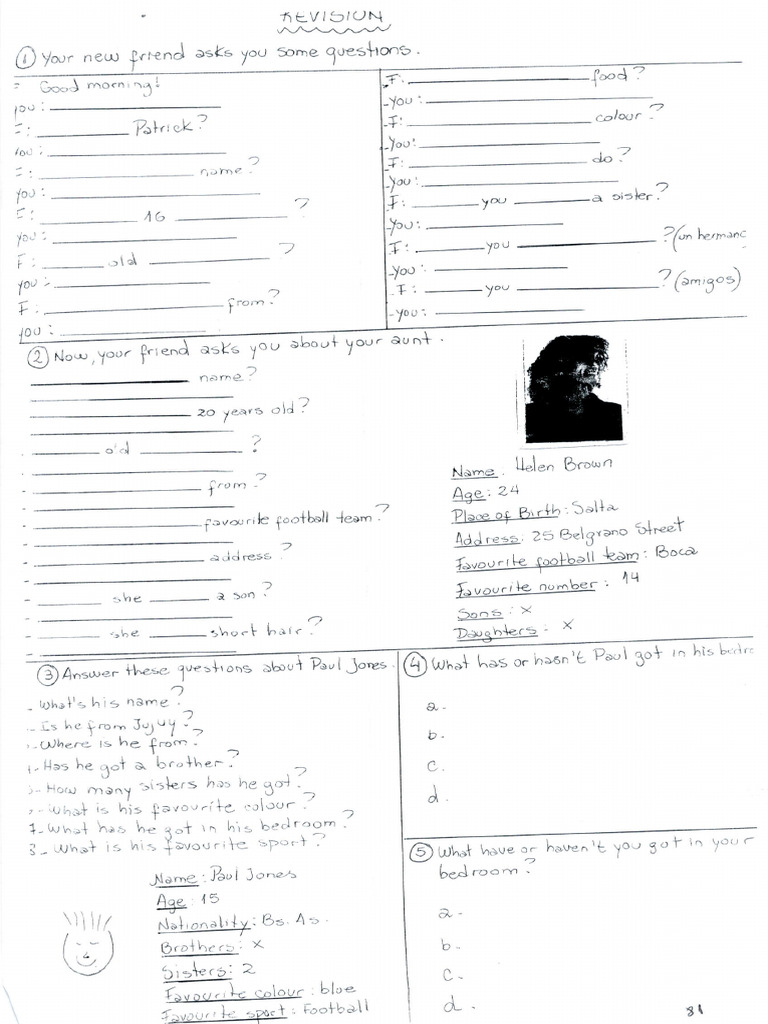 REVISION
① Your new friend asks you some questions.
: Good morning!
you: ____
F: ____ Patrick?
you: ____
F: ____ name?
you: ____
F: ____ 16 ____?
you: ____
F: ____ old ____?
you: ____
F: ____ from?
you: ____
F: ____ food?
-you: ____
F: ____ colour?
-you: ____
F: ____ do?
-you: ____
F: ____ you ____ a sister?
-you: ____
F: ____ you ____? (un hermano
-you: ____
F: ____ you ____? (amigos)
-you: ____
② Now, your friend asks you about your aunt.
____ name?
____
____ 20 years old?
____
- ____ old ____?
- ____
- ____ from?
- ____
- ____ favourite football team?
- ____
- ____ address?
- ____
- ____ she ____ a son?
- ____
- ____ she ____ short hair?
- ____
Name. Helen Brown
Age: 24
Place of Birth: Salta
Address: 25 Belgrano Street
Favourite football team: Boca
Favourite number: 14
Sons: x
Daughters: x
③ Answer these questions about Paul Jones.
- What's his name?
- Is he from Jujuy?
- Where is he from?
- Has he got a brother?
- How many sisters has he got?
- What is his favourite colour?
7- What has he got in his bedroom?
8- What is his favourite sport?
Name: Paul Jones
Age: 15
Nationality: Bs. As.
Brothers: x
Sisters: 2
Favourite colour: blue
Favourite sport: Football
④ What has or hasn't Paul got in his bedro
a-
b.
c.
d.
⑤ What have or haven't you got in your
bedroom?
a-
b.
c-
d.
81